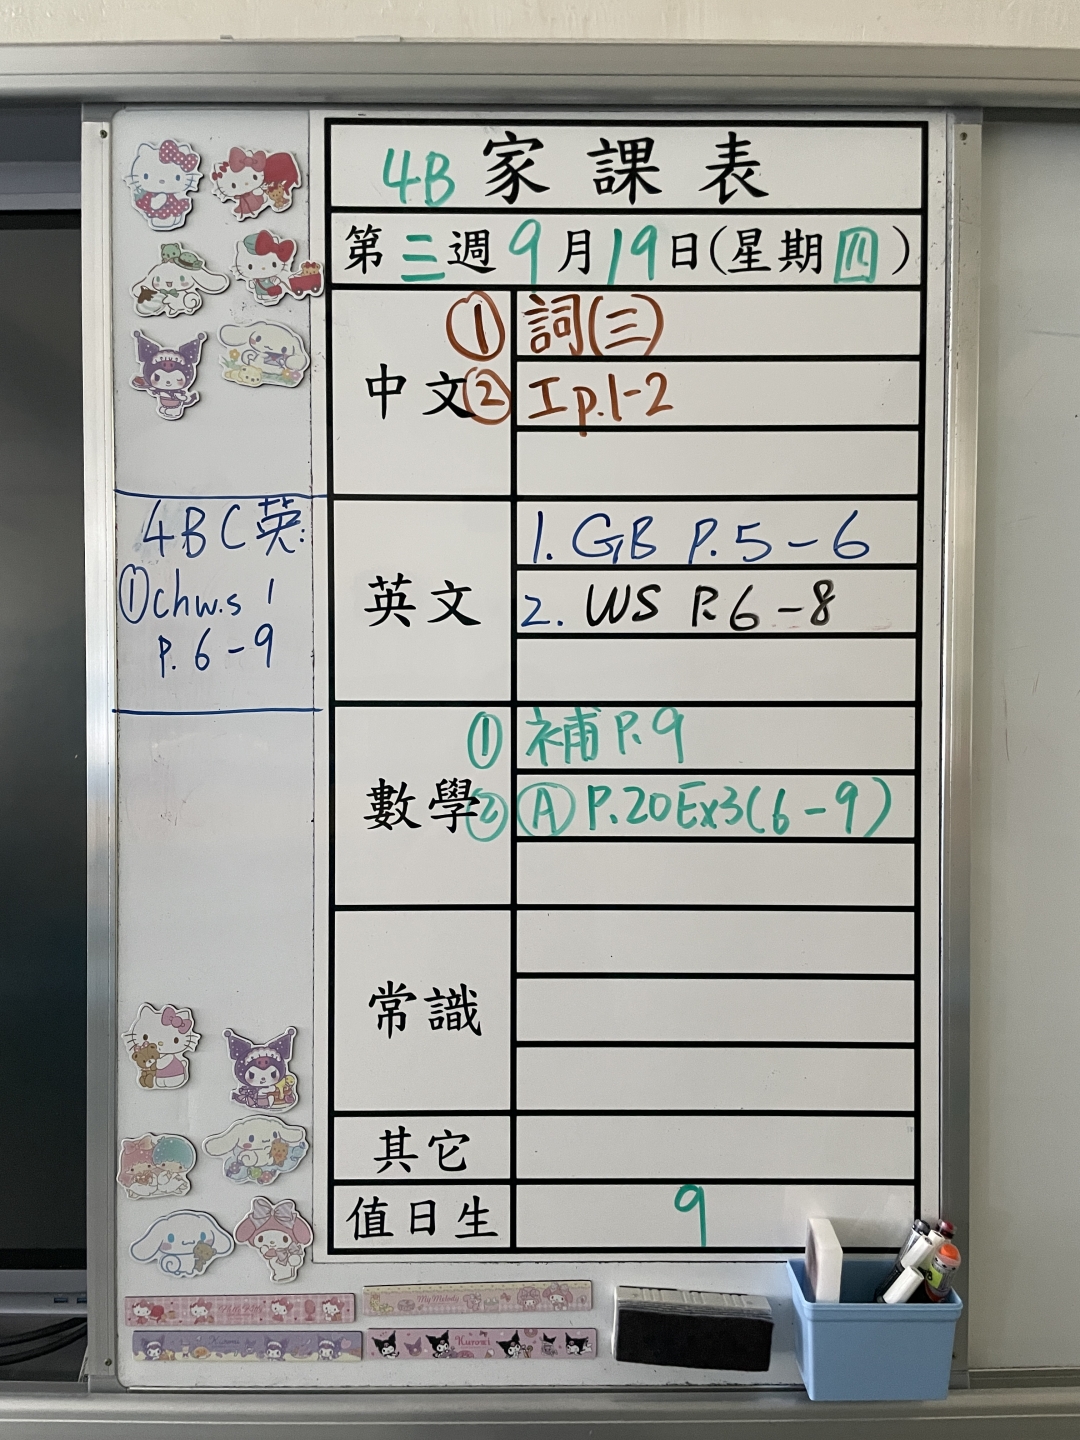 4B 家課表
第三週9月19日(星期四)
中文
① 詞(三)
② 工p.1-2
4BC英:
①chw.s 1
P.6-9
英文
1. GB P.5-6
2. WS P.6-8
數學
① 補P.9
② Ⓐ P.20Ex3(6-9)
常識
其它
值日生 9
My Melody
Kuromi